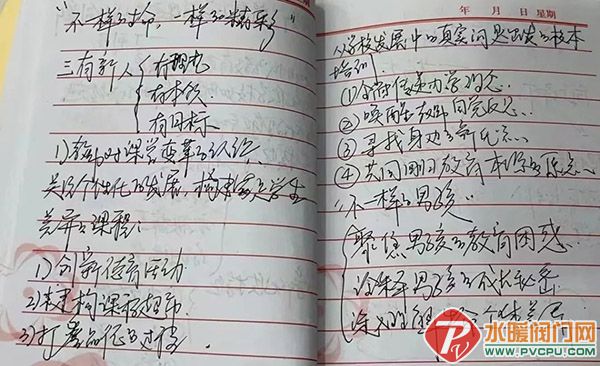 "不一样的生命，一样的精彩"
三有新人 有理想
有本领
有目标
1) 教师对课堂变革的认识
关注个性化的发展，构建学生
差异的课程：
1) 创新德育活动
2) 建构课程超市
3) 打善品德的过程
年 月 日 星期
从学校发展中的真实问题出发的校本
培训
① 全方位传递办学理念
② 唤醒教师
③ 寻找身边的
④ 共同回归教育本源的
"不一样的男孩"
聚焦男孩的教育困惑
诠释男孩的成长秘密
个体差异
水暖阀门网
www.PVCPU.com